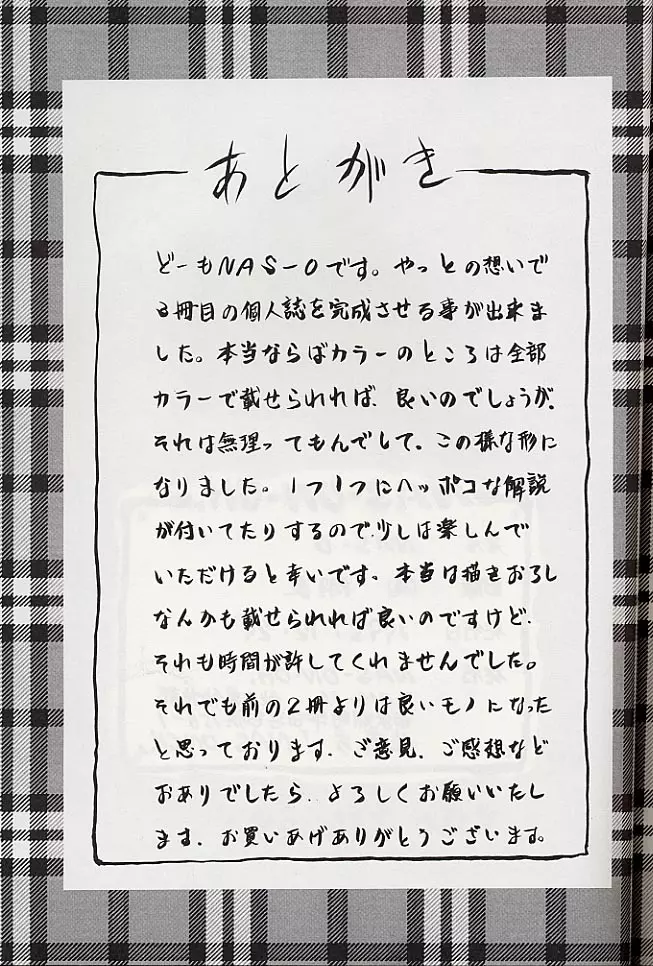 あとがき
どーもNAS-Oです。やっとの想いで
3冊目の個人誌を完成させる事が出来ま
した。本当ならばカラーのところは全部
カラーで載せられれば、良いのでしょうが、
それは無理ってもんでして、この様な形に
なりました。1つ1つにヘッポコな解説
が付いてたりするので、少しは楽しんで
いただけると幸いです。本当は描きおろし
なんかも載せられれば良いのですけど、
それも時間が許してくれませんでした。
それでも前の2冊よりは良いモノになった
と思っております、ご意見、ご感想など
おありでしたら、よろしくお願いいたし
ます、お買いあげありがとうございます。